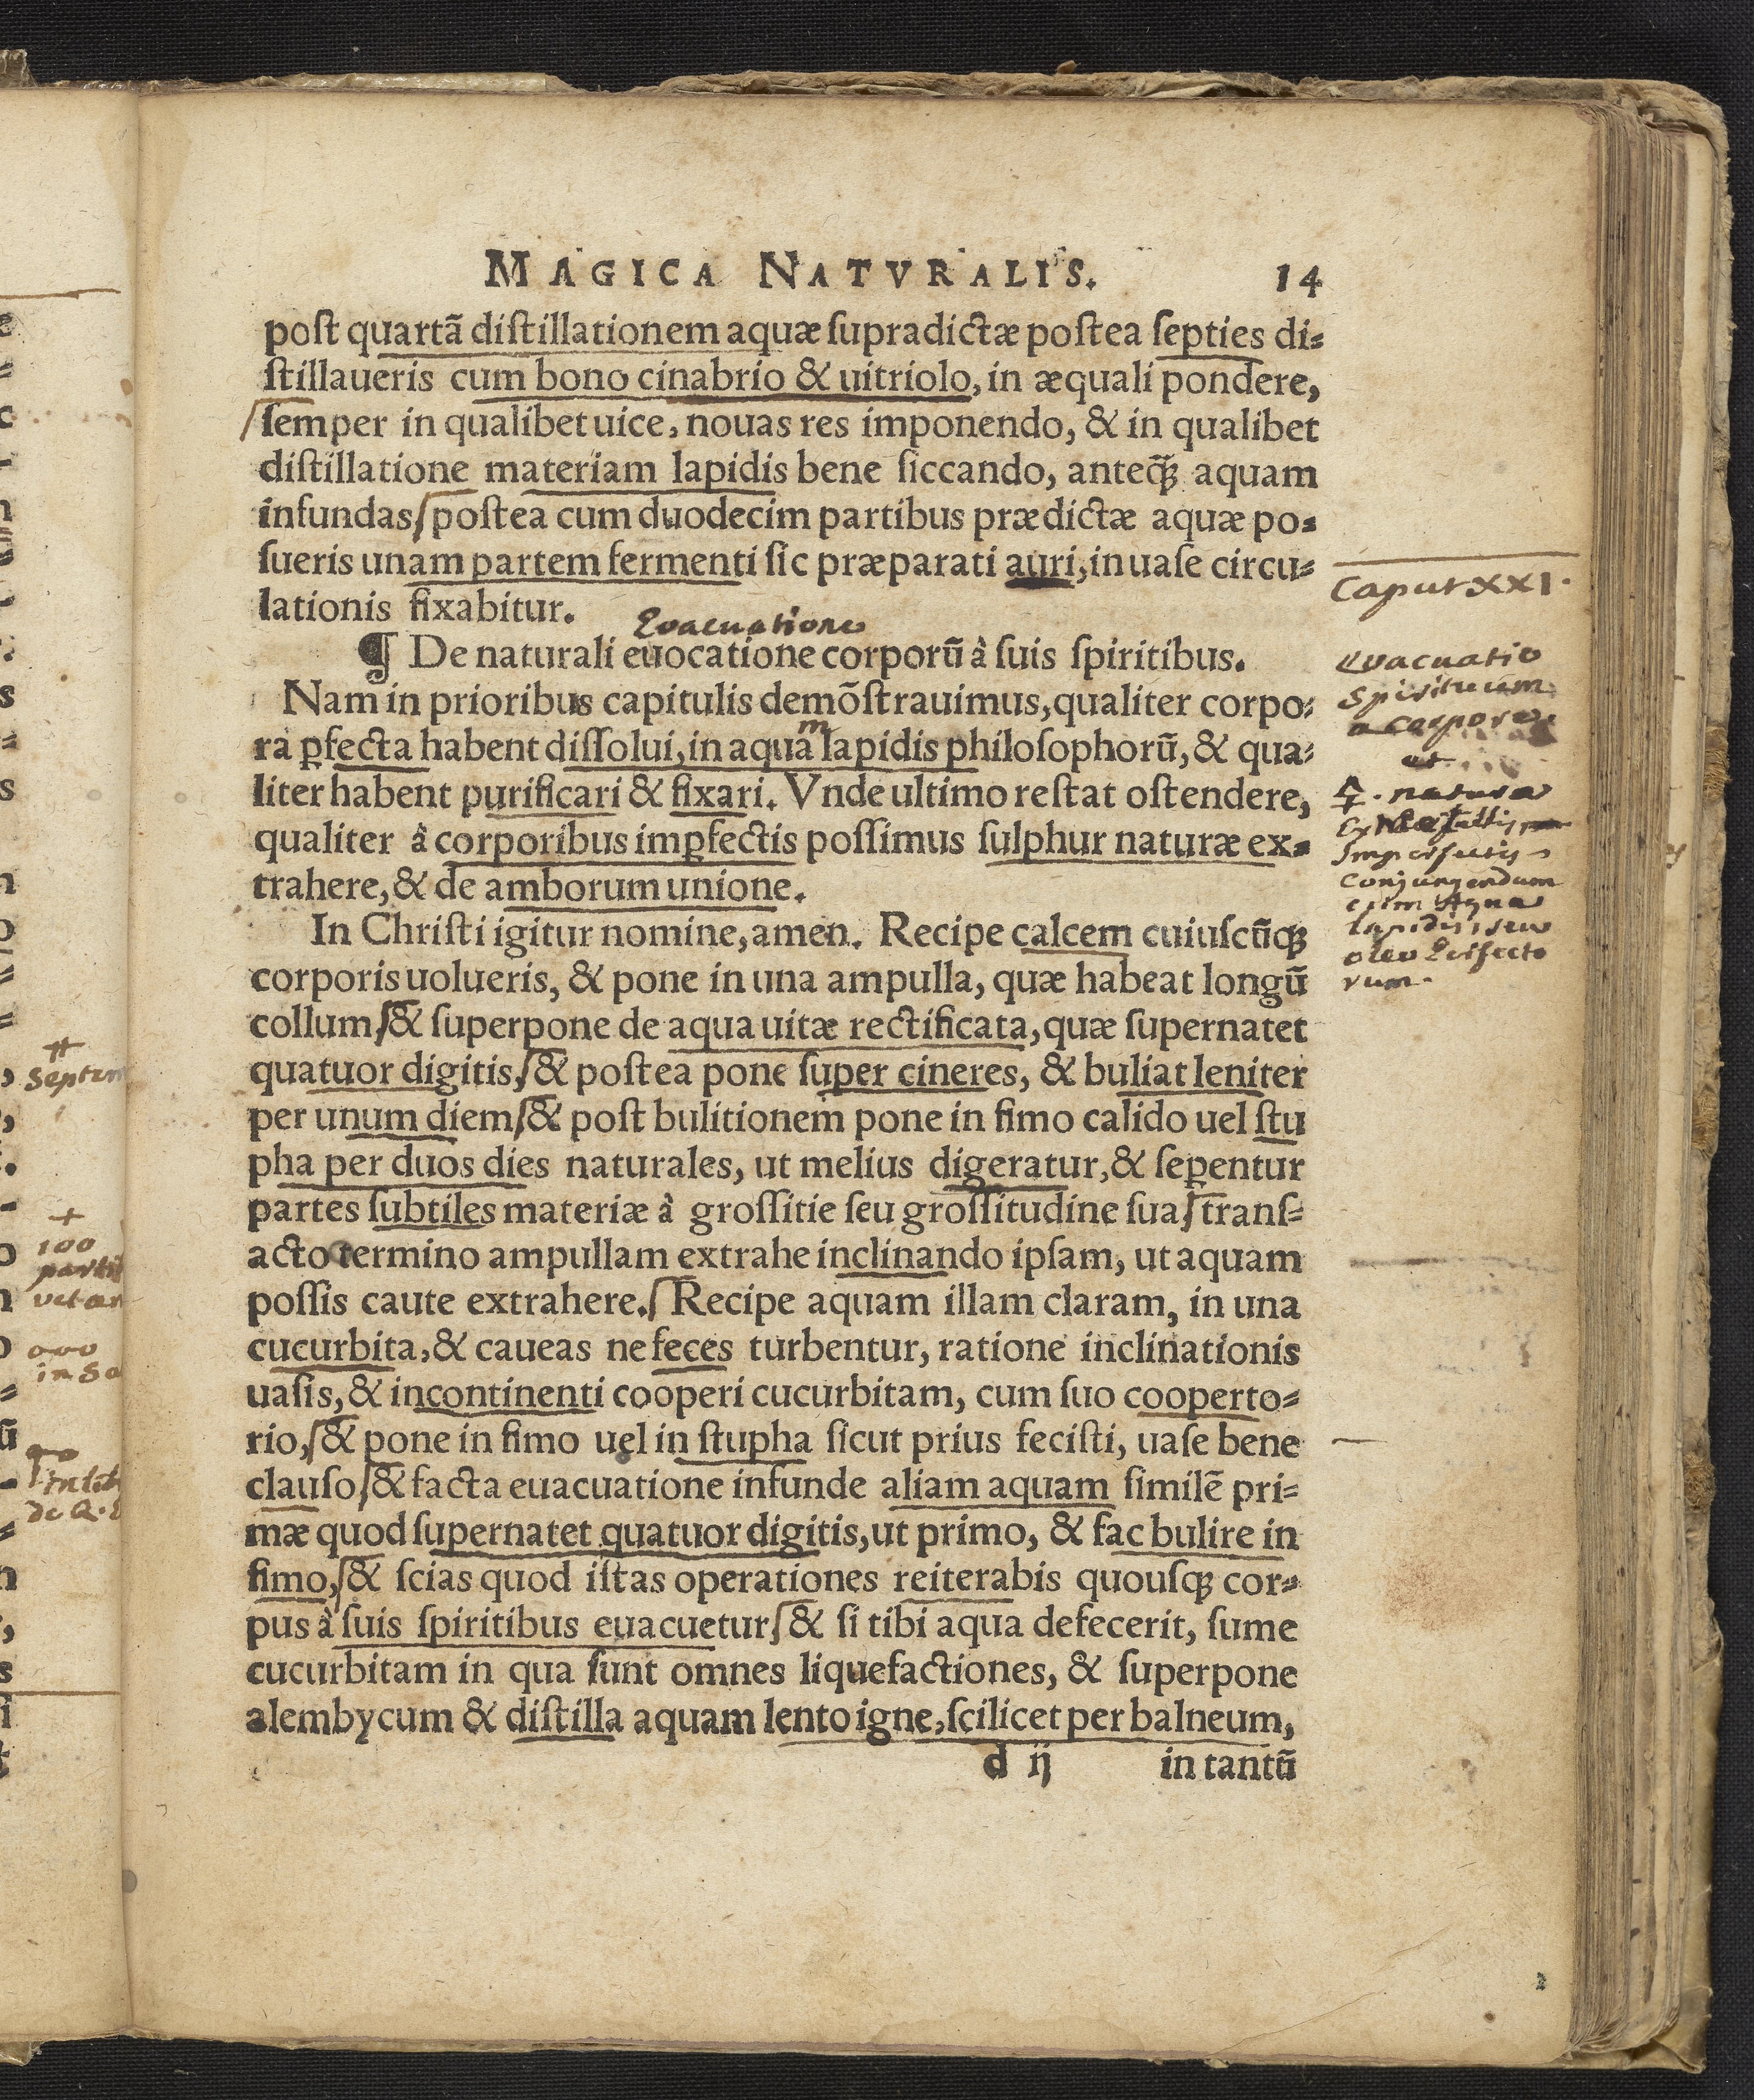 MAGICA NATVRALIS. 14
post quartã distillationem aquæ supradictæ postea septies di=
stillaueris cum bono cinabrio & uitriolo, in æquali pondere,
semper in qualibet uice, nouas res imponendo, & in qualibet
distillatione materiam lapidis bene siccando, anteq̃ꝫ aquam
infundas postea cum duodecim partibus prædictæ aquæ po=
sueris unam partem fermenti sic præparati auri, in uase circu=
lationis fixabitur.
Evacuatione
¶ De naturali euocatione corporũ à suis spiritibus.
Nam in prioribus capitulis demõstrauimus, qualiter corpo=
ra ꝑfecta habent dissolui, in aquam lapidis philosophorũ, & qua=
liter habent purificari & fixari. Vnde ultimo restat ostendere,
qualiter à corporibus imꝑfectis possimus sulphur naturæ ex=
trahere, & de amborum unione.
In Christi igitur nomine, amen. Recipe calcem cuiuscũqꝫ
corporis uolueris, & pone in una ampulla, quæ habeat longũ
collum, & superpone de aqua uitæ rectificata, quæ supernatet
quatuor digitis, & postea pone super cineres, & buliat leniter
per unum diem, & post bulitionem pone in fimo calido uel stu
pha per duos dies naturales, ut melius digeratur, & seꝑentur
partes subtiles materiæ à grossitie seu grossitudine sua, trans=
acto termino ampullam extrahe inclinando ipsam, ut aquam
possis caute extrahere. Recipe aquam illam claram, in una
cucurbita, & caueas ne feces turbentur, ratione inclinationis
uasis, & incontinenti cooperi cucurbitam, cum suo cooperto=
rio, & pone in fimo uel in stupha sicut prius fecisti, uase bene
clauso, & facta euacuatione infunde aliam aquam similẽ pri=
mæ quod supernatet quatuor digitis, ut primo, & fac bulire in
fimo, & scias quod istas operationes reiterabis quousqꝫ cor=
pus à suis spiritibus euacuetur, & si tibi aqua defecerit, sume
cucurbitam in qua sunt omnes liquefactiones, & superpone
alembycum & distilla aquam lento igne, scilicet per balneum,
d ij in tantũ
Caput XXI.
Evacuatio
Spirituum
a corpore.
et
🜍. natura
Ex Metallis
Imperfectis
conjungendum
cum Aqua
lapidis, seu
oleo Perfecto
rum.
septem
100
partes